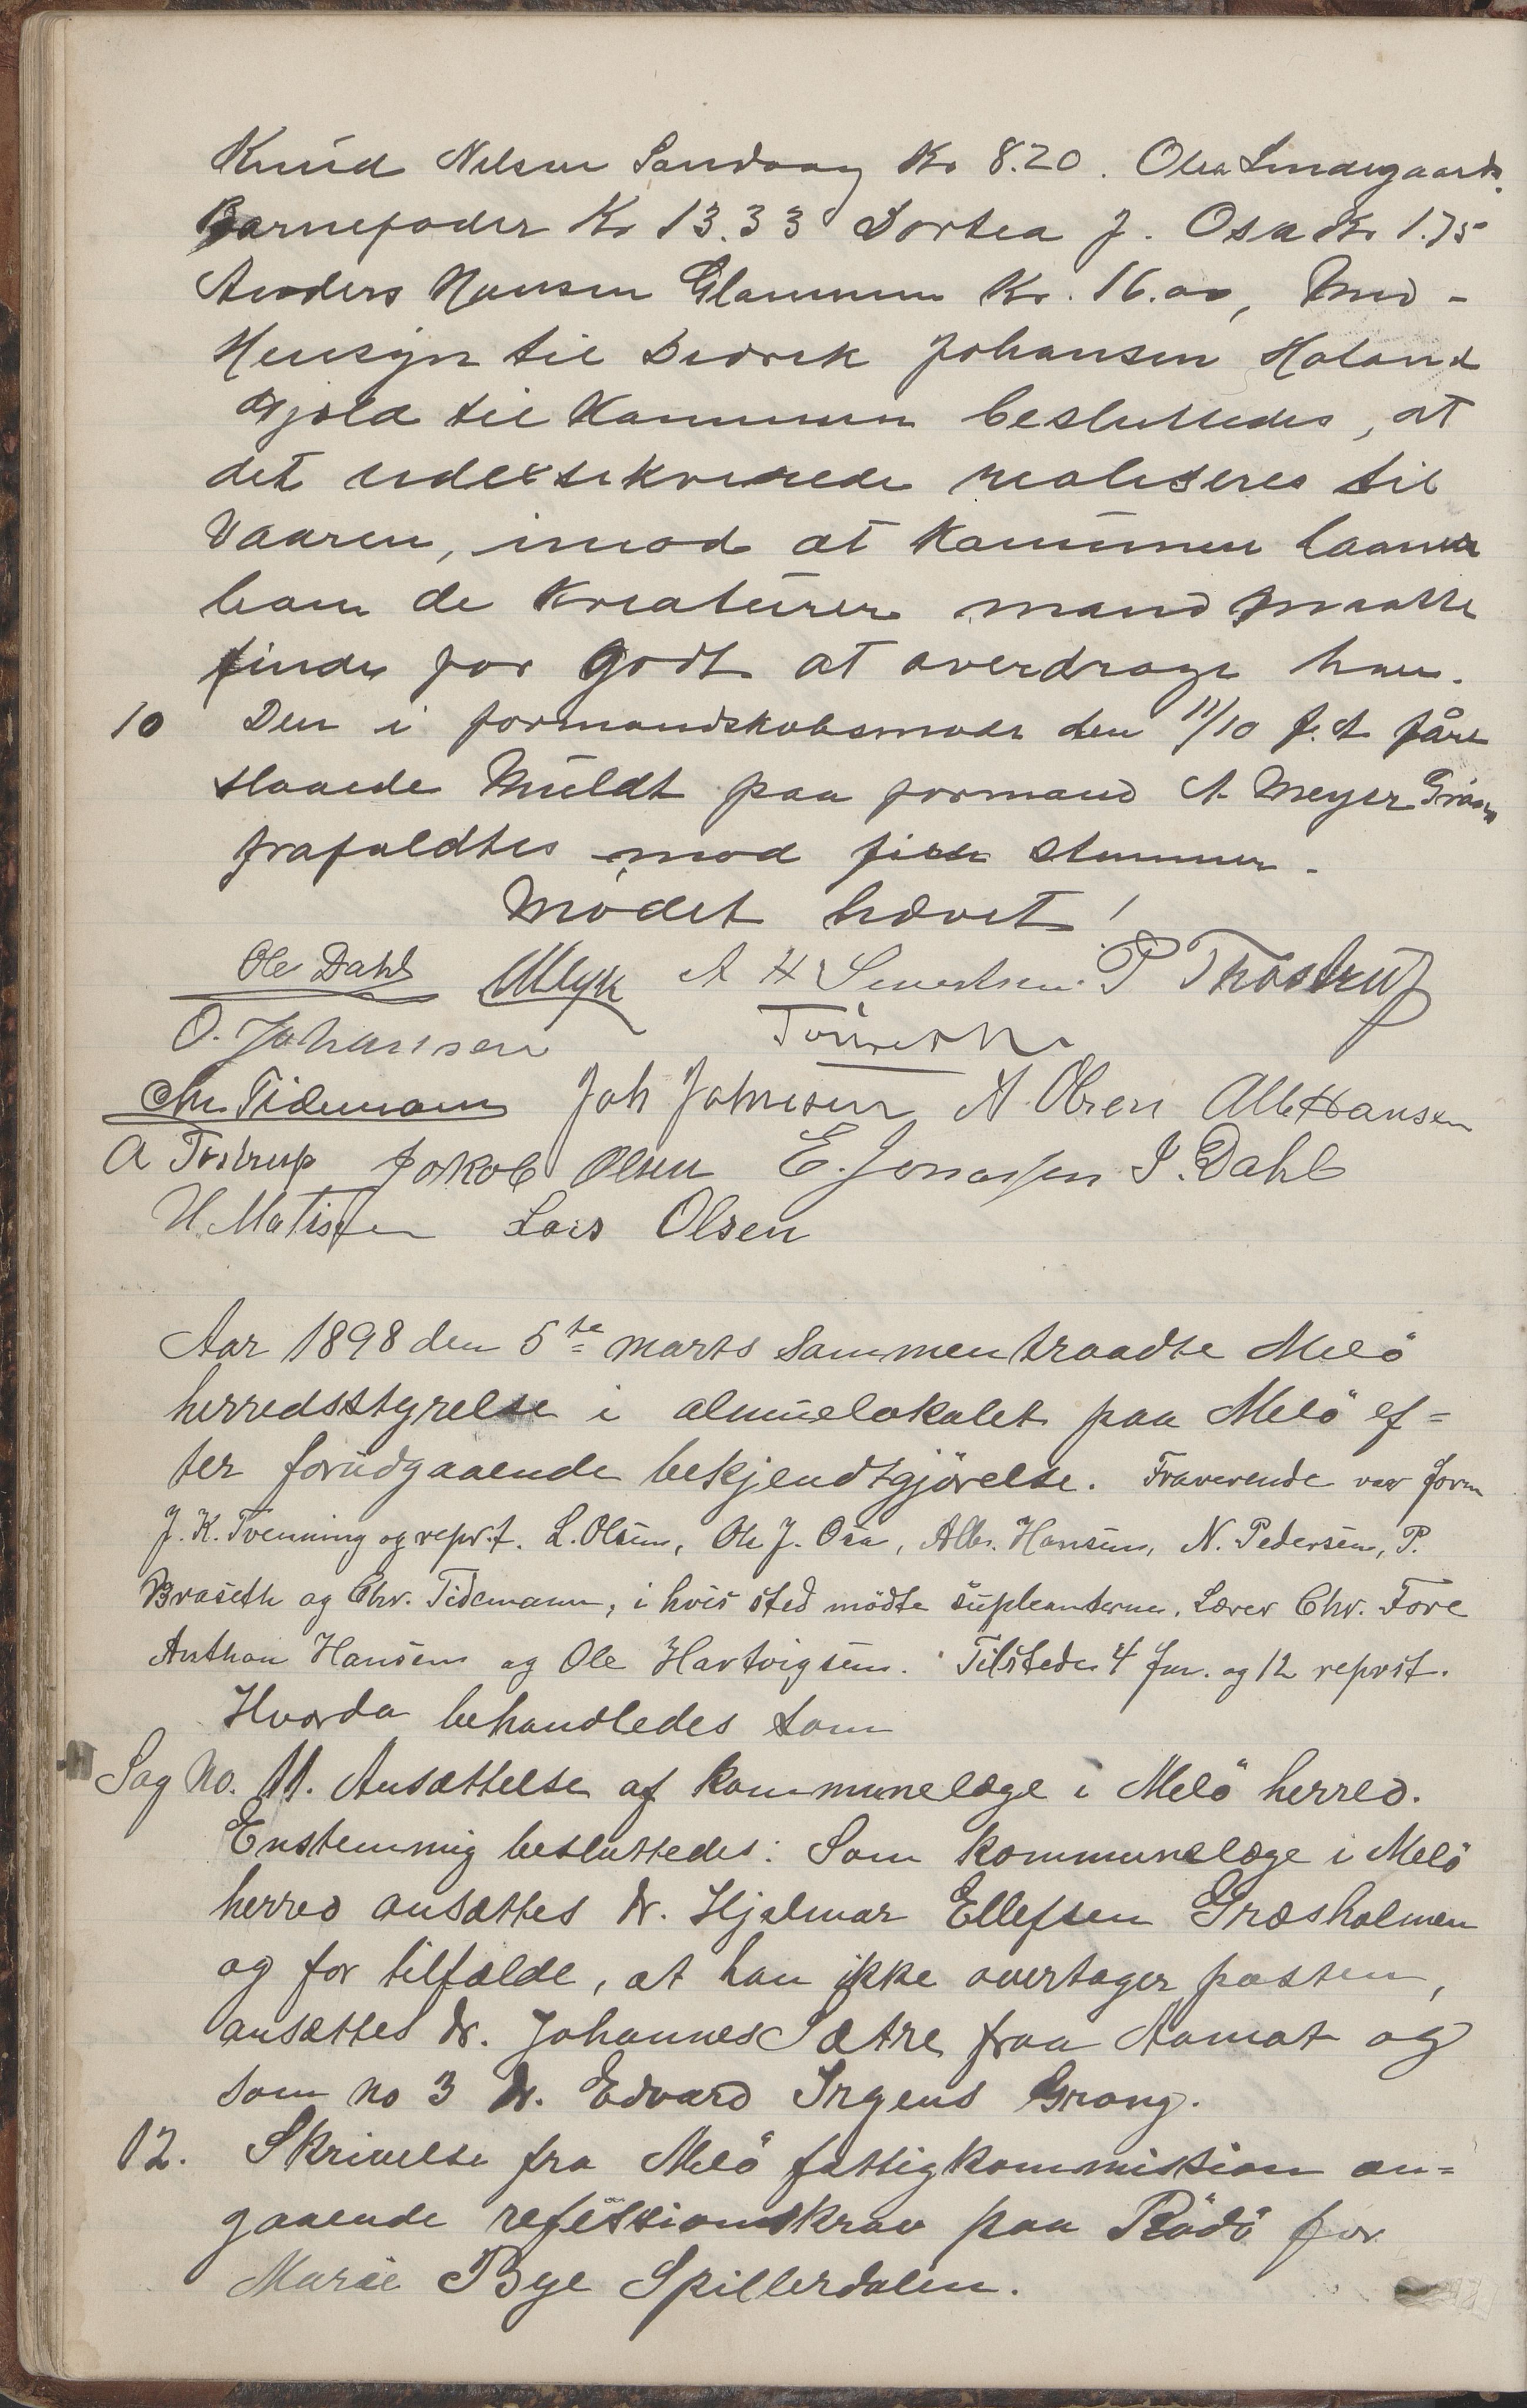 Knud Nilsen Sandvaag Kr 8.20. Olea Lindegaards
Barnefader Kr 13.33 Dortea J. Osa Kr 1.75
Anders Hansen Glammen Kr. 16.00, Med-
Hensyn til Didrik Johansen Haland
Gjæld til Kommunen besluttedes, at
det udexsekverede realiseres til
Vaaren, imod at Kommunen laaner
ham de Kreaturer mand maatte
finde for Godt at overdrage ham.
10 Den i formandskabsmøde den 11/10 f. A fåre
slaaede Muldt paa formand A. Meyer
frafaldtes mod fire stemmer.
Mödet hævet!
Ole Dahl Myk A H Sivertsen P Thostrup
O. Johansen
Chr Tidemann Joh Johnsen A. Olsen Alb Hansen
A Tostrup Jakob Olsen E. Jonassen I. Dahl
H. Matisen Lars Olsen
Aar 1898 den 5te marts sammentraadte Melö
herredsstyrelse i almuelokalet paa Melö ef=
ter forudgaaende bekjendtgjörelse. Fraværende var form
J. K. Tvenning og reprt. L. Olsen, Ole J. Osa, Alb. Hansen, N. Pedersen, P.
Braseth og Chr. Tidemann, i hvis sted mödte supleanterne. Lærer Chr. Fore
Anthon Hansen og Ole Hartvigsen. Tilstede 4 for. og 12 reprst.
Hvorda behandledes som
Sag No. 11. Ansættelse af kommunelæge i Melö herred.
Enstemmig besluttedes: Som kommunelæge i Melö
herred ansættes Dr. Hjalmar Ellefsen Græsholmen
og for tilfælde, at han ikke overtager posten,
ansættes Dr. Johannes Sætre fraa Aamot og
som no 3 Dr. Edvard Irgens Grong.
12. Skrivelse fra Melö fattigkommission an=
gaaende refusionskrav paa Rödö for
Marie Bye Spillerdalen.